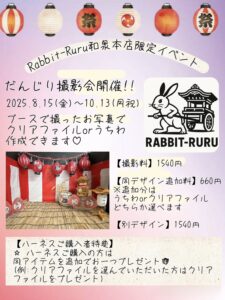 祭
祭
Rabbit-Ruru和泉本店限定イベント
だんじり撮影会開催!!
2025.8.15(金)〜10.13(月祝)
ブースで撮ったお写真で
クリアファイルorうちわ
作成できます♡
RABBIT-RURU
【撮影料】1540円
【同デザイン追加料】660円
※追加分は
うちわorクリアファイル
どちらか選べます
【別デザイン】1540円
【ハーネスご購入者特典】
☆ ハーネスご購入の方は
同アイテムを追加でお一つプレゼント
(例:クリアファイルを選んでいただいた方はクリア
ファイルをプレゼント)